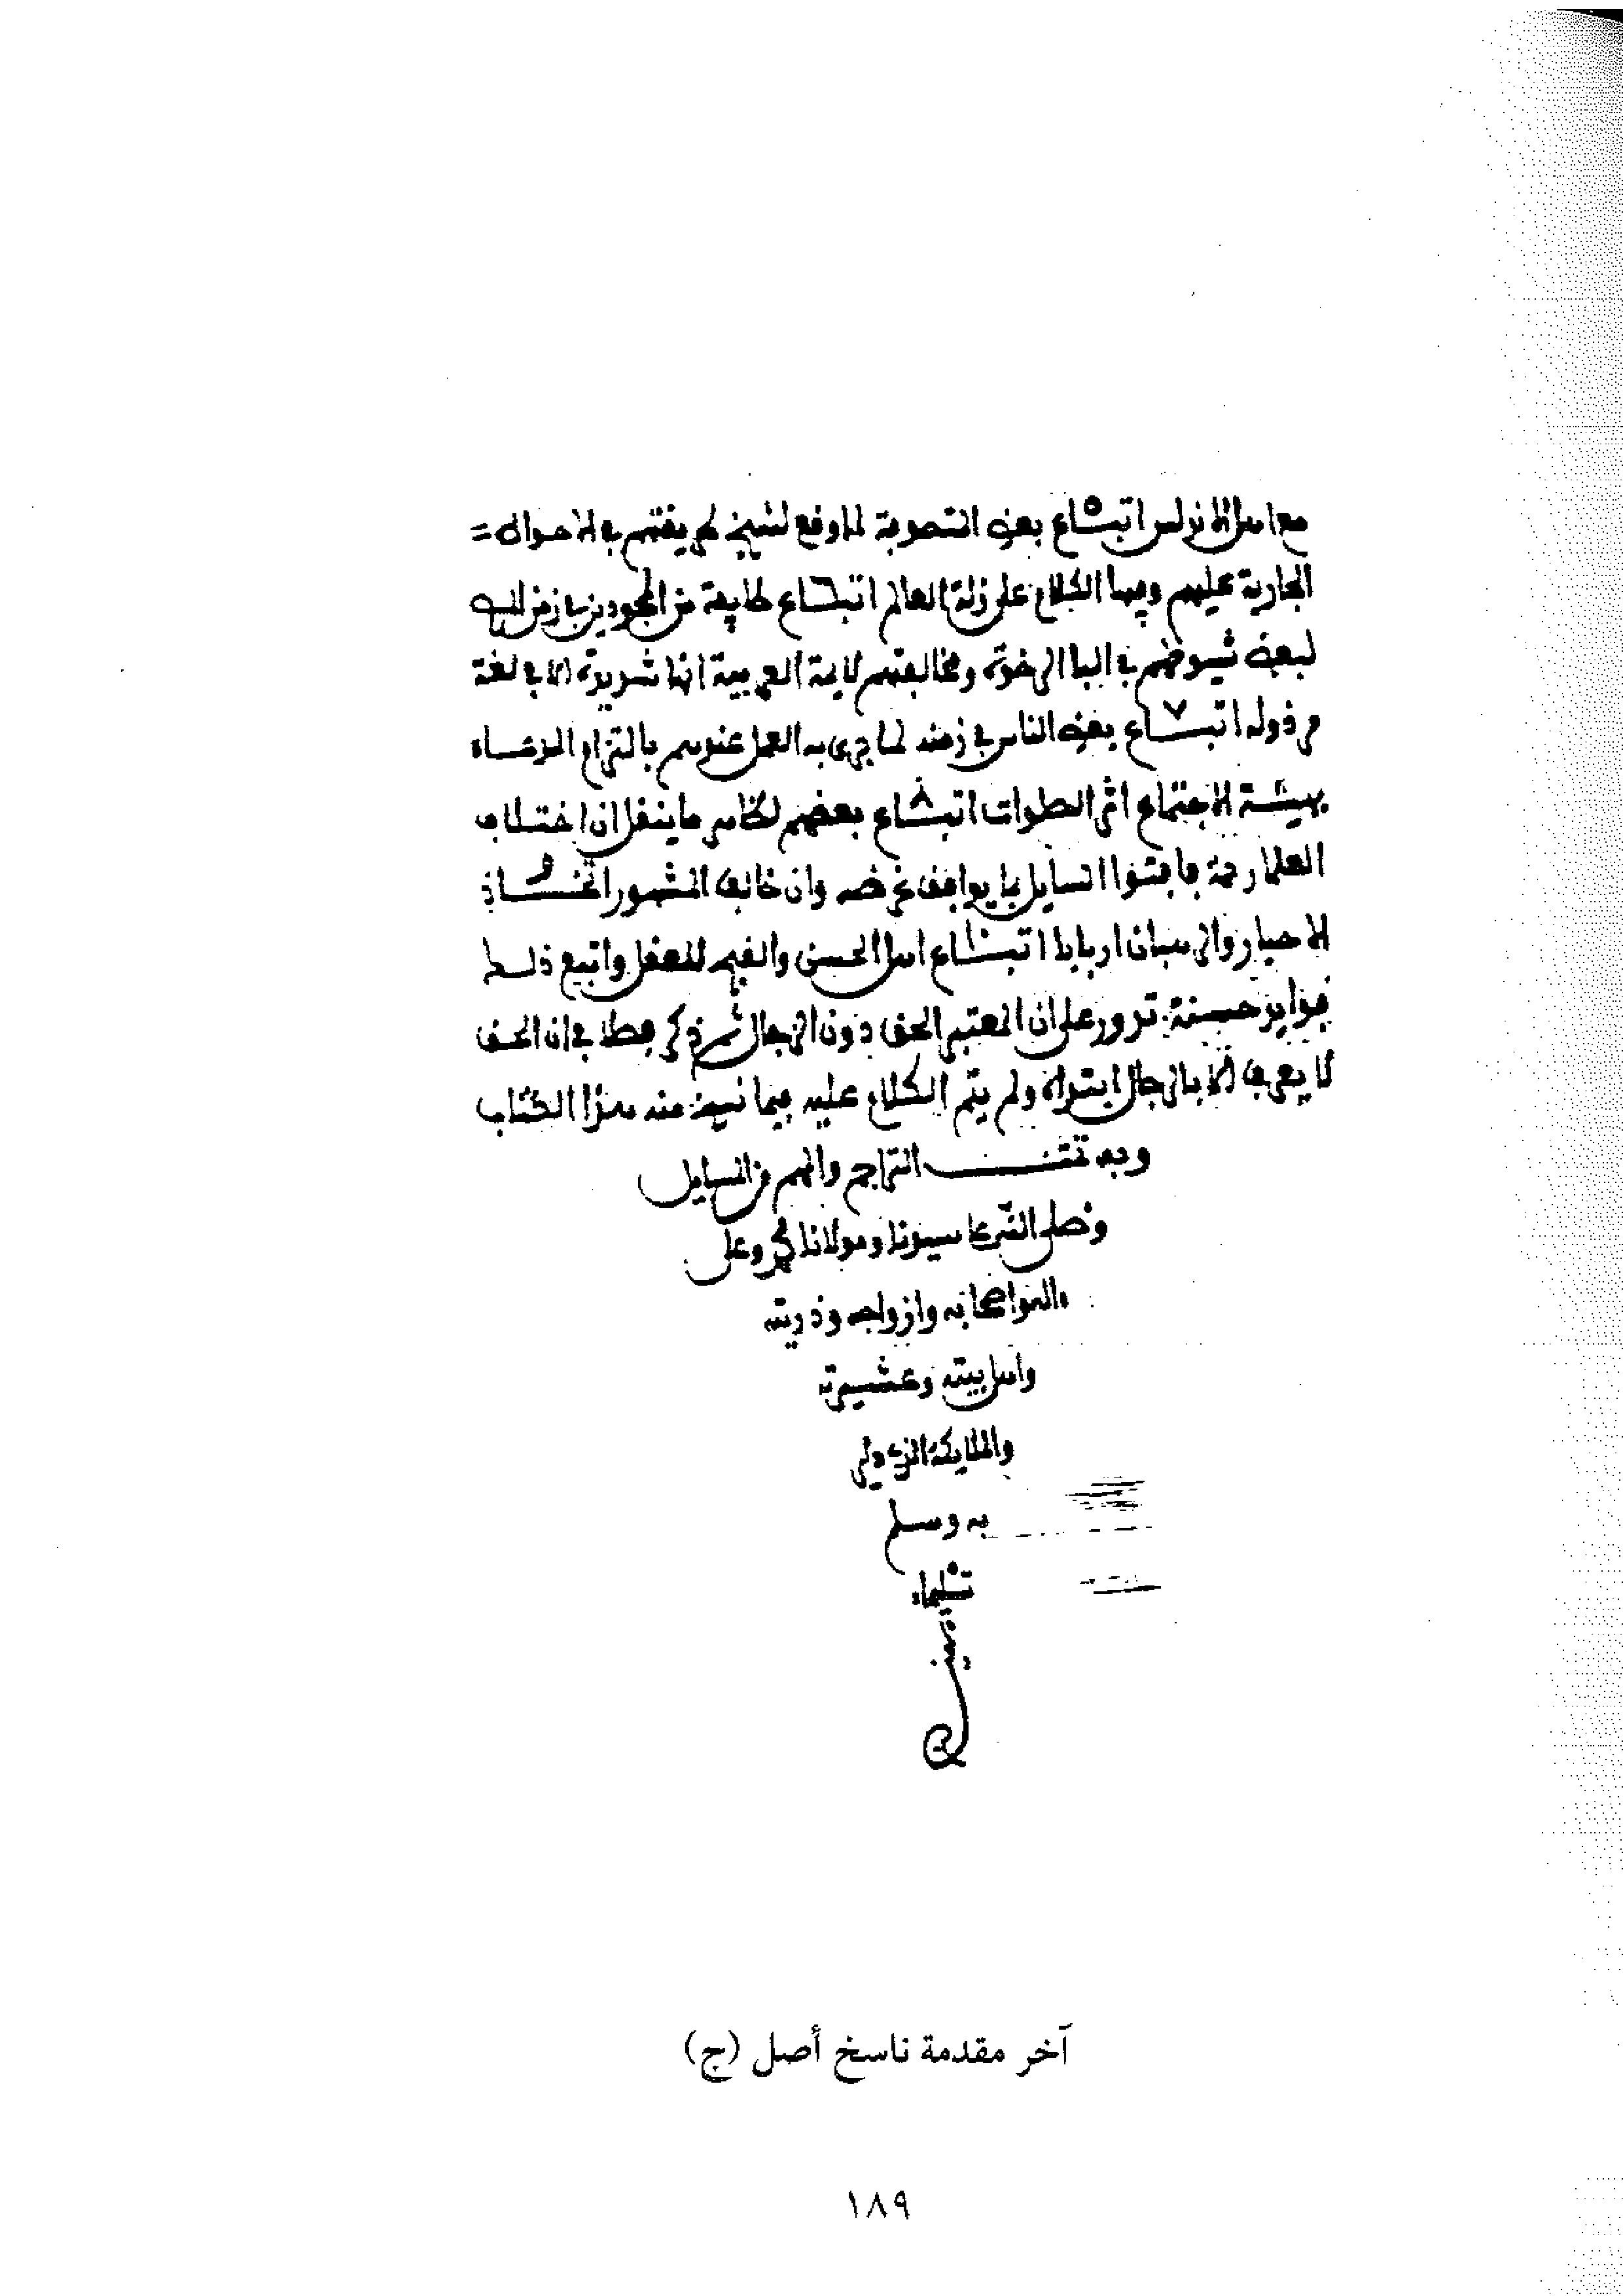 مع اهل الاندلس اتبــ٥ــاع بعض المتصوفة لما وقع لشيخ لم يفتهم في الاحوال =
الجارية عليهم وفيها الكلام على زلة العالم اتبــ٦ــاع طايفة من المجودين في زمن المؤلف
لبعض شيوخهم في البا الرخوة ومخالفتهم لايمة العربية انها شديدة الا في لغة
مرذولة اتبــ٧ــاع بعض الناس في زمنه لما جرى به العمل عندهم بالتزام الدعــاء
بهيئــة الاجتماع اثر الصلوات اتبــ٨ــاع بعضهم لظاهر ما ينقل ان اختــلاف
العلما رحمة فافتوا السايل بما يوافق غرضه وان خالف المشهور اتخــ٩ــاذ
الاحبار والرهبان اربابا اتبــ١٠ــاع اهل الحسن والقبح للعقل واتبع ذلــك
بفوايد حسنة تدور على ان المعتبر الحق دون الرجال ثم ذكر فصلا في ان الحــق
لا يعرف الا بالرجال ابتداه ولم يتم الكلام عليه فيما نسخ منه هذا الكتاب
وبه تمــت التراجم والمهم من المسايل
وصلى الله على سيدنا ومولانا محمد وعلى
ءاله واصحابه وازواجه وذريته
واهل بيته وعشيرته
والملايكة
به وسلم
تسليما
آخر مقدمة ناسخ أصل (ج)
١٨٩